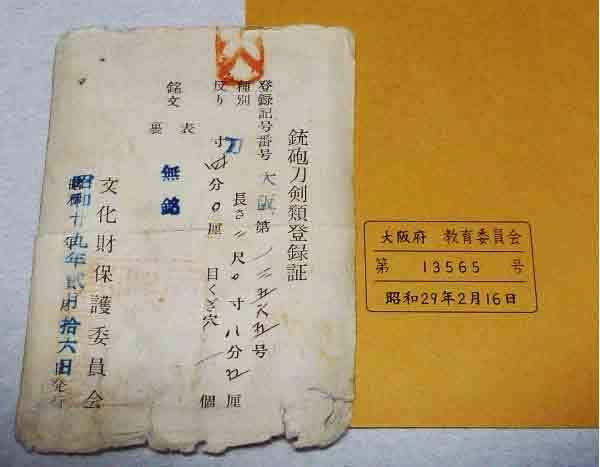 銃砲刀剣類登録証
登録記号番号 大阪 第一三五六五号
種別 刀 長さ二尺〇寸八分五厘
反り 寸四分〇厘 目くぎ穴 一個
銘文 表 無銘
裏
文化財保護委員会
昭和廿九年貳月拾六日発行
大阪府 教育委員会
第 13565 号
昭和29年2月16日